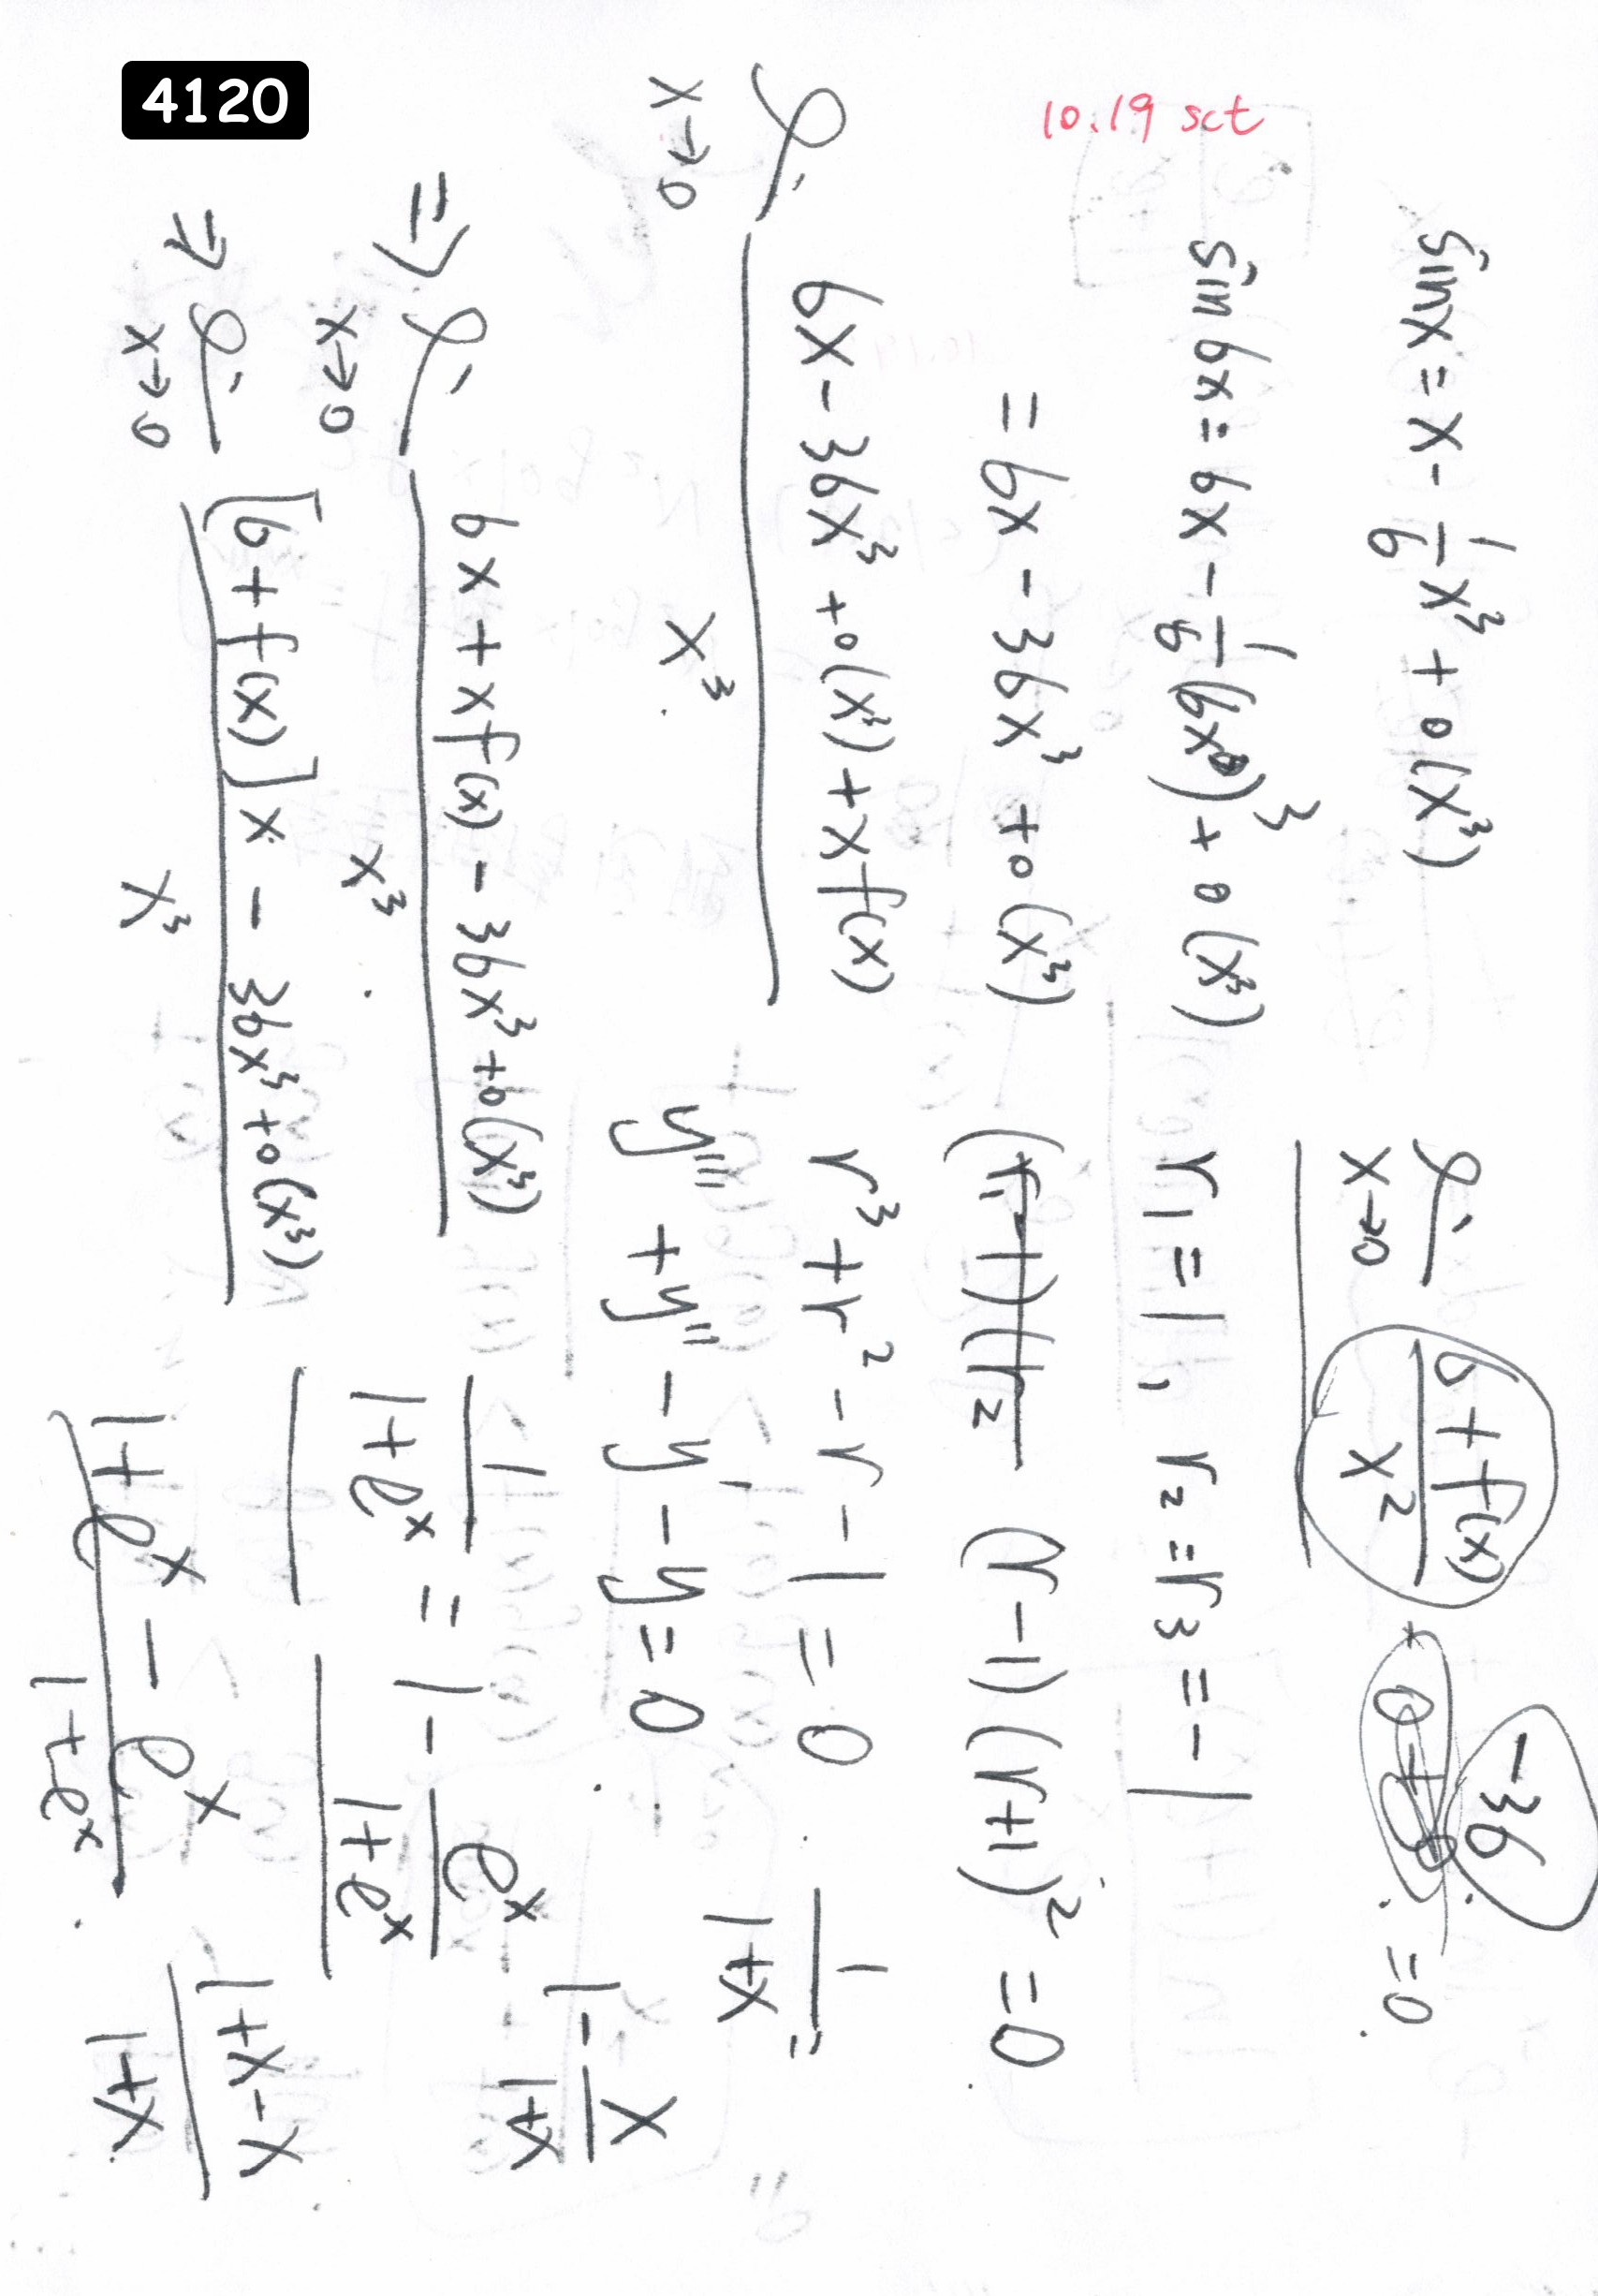 4120
10.19 sct
sinx = x - 1/6 x³ + o(x³)
sin 6x = 6x - 1/6 (6x)³ + o(x³)
= 6x - 36x³ + o(x³)
x→0 6x - 36x³ + o(x³) + xf(x) / x³
⇒ x→0 6x + xf(x) - 36x³ + o(x³) / x³
⇒ x→0 [6 + f(x)]x - 36x³ + o(x³) / x³
x→0 6 + f(x) / x² -36 = 0
r₁ = 1, r₂ = r₃ = -1
(r-1)(r+1)² = 0
r³ + r² - r - 1 = 0
y''' + y'' - y' - y = 0
1 / 1+eˣ = 1 - eˣ / 1+eˣ
1+eˣ - eˣ / 1+eˣ
1 / 1+x =
1 - x / 1+x
1+x-x / 1+x